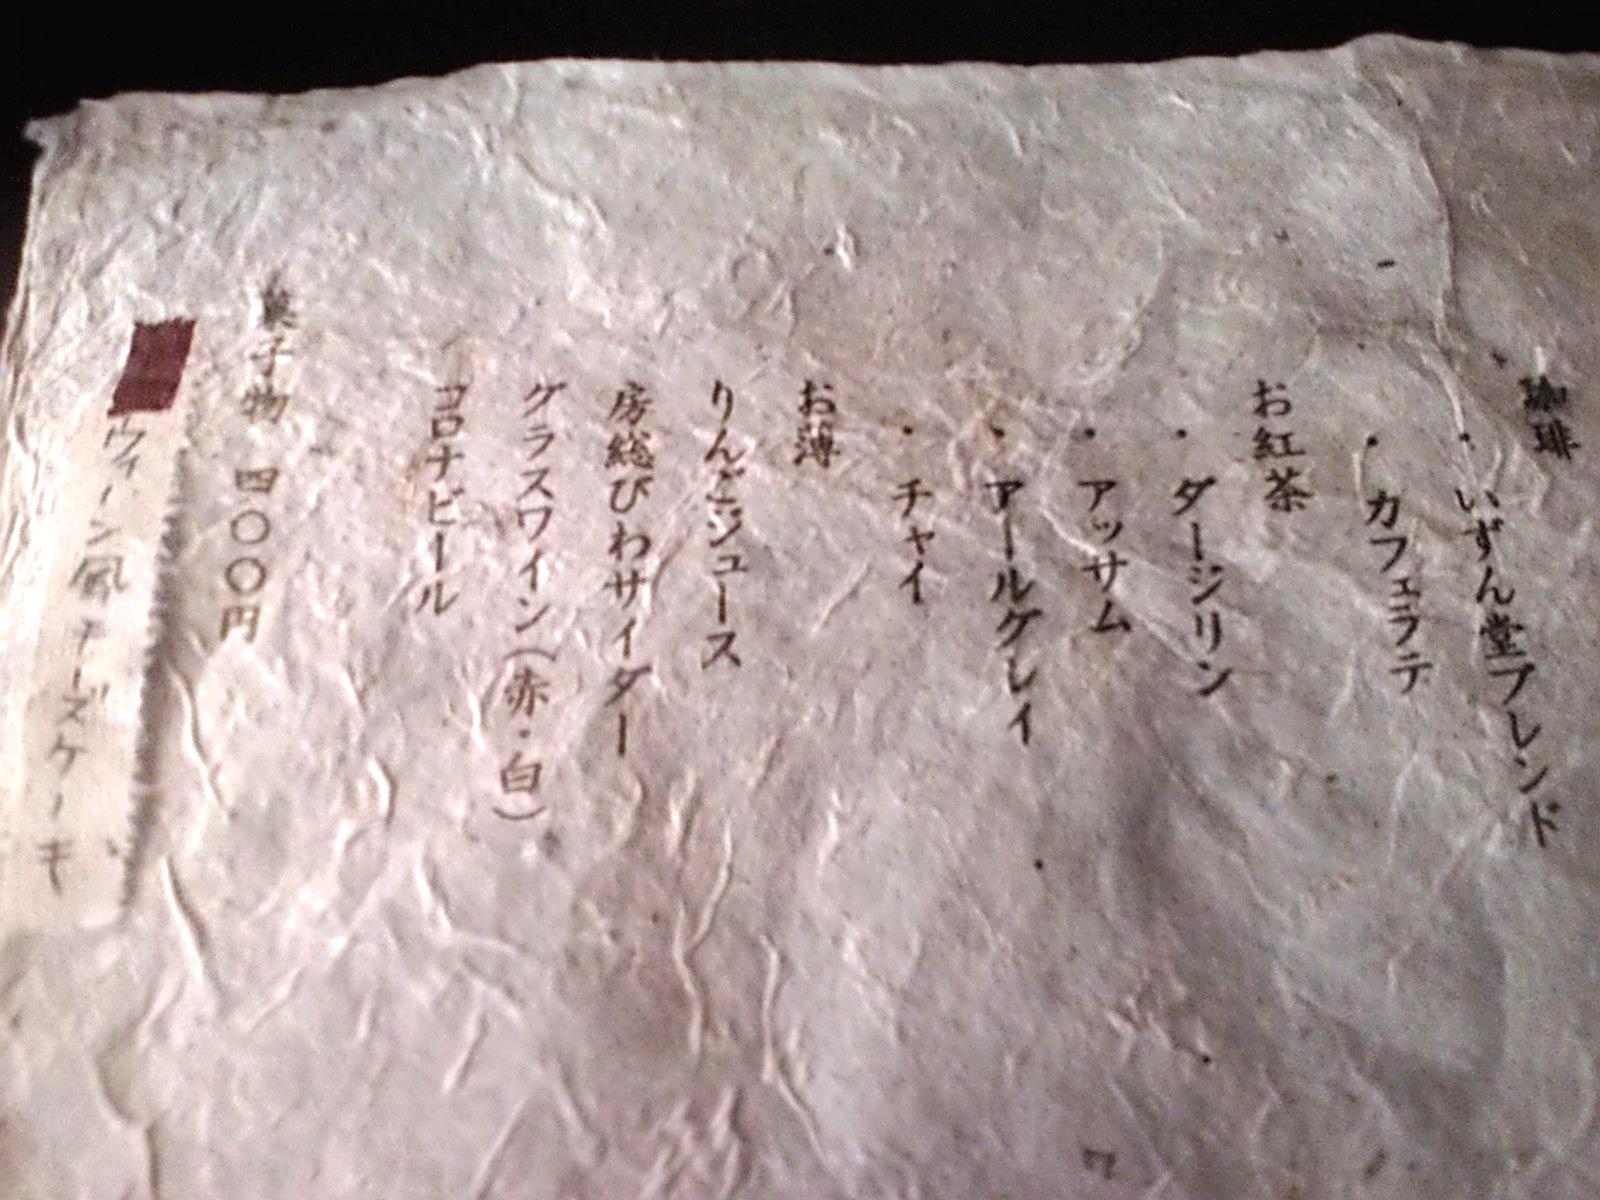 珈琲
・いずん堂ブレンド
・カフェラテ
お紅茶
・ダージリン
・アッサム
・アールグレイ
・チャイ
お薄
りんごジュース
房総びわサイダー
グラスワイン(赤・白)
コロナビール
菓子物 四〇〇円
ウィーン風チーズケーキ